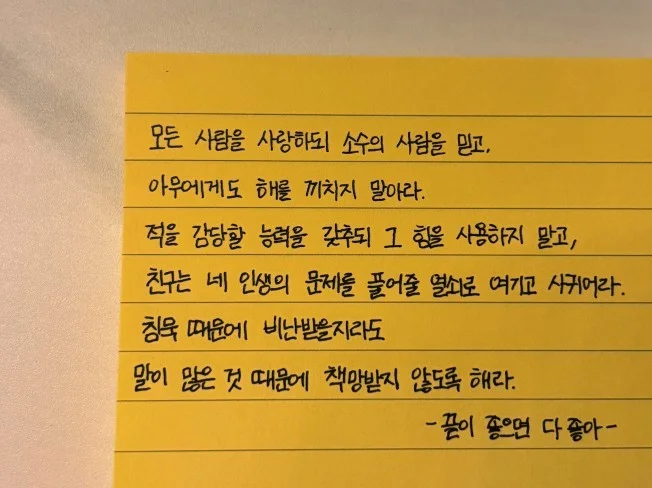 모든 사람을 사랑하되 소수의 사람을 믿고,
아무에게도 해를 끼치지 말아라.
적을 감당할 능력을 갖추되 그 힘을 사용하지 말고,
친구는 네 인생의 문제를 풀어줄 열쇠로 여기고 사귀어라.
침묵 때문에 비난받을지라도
말이 많은 것 때문에 책망받지 않도록 해라.
- 끝이 좋으면 다 좋아 -